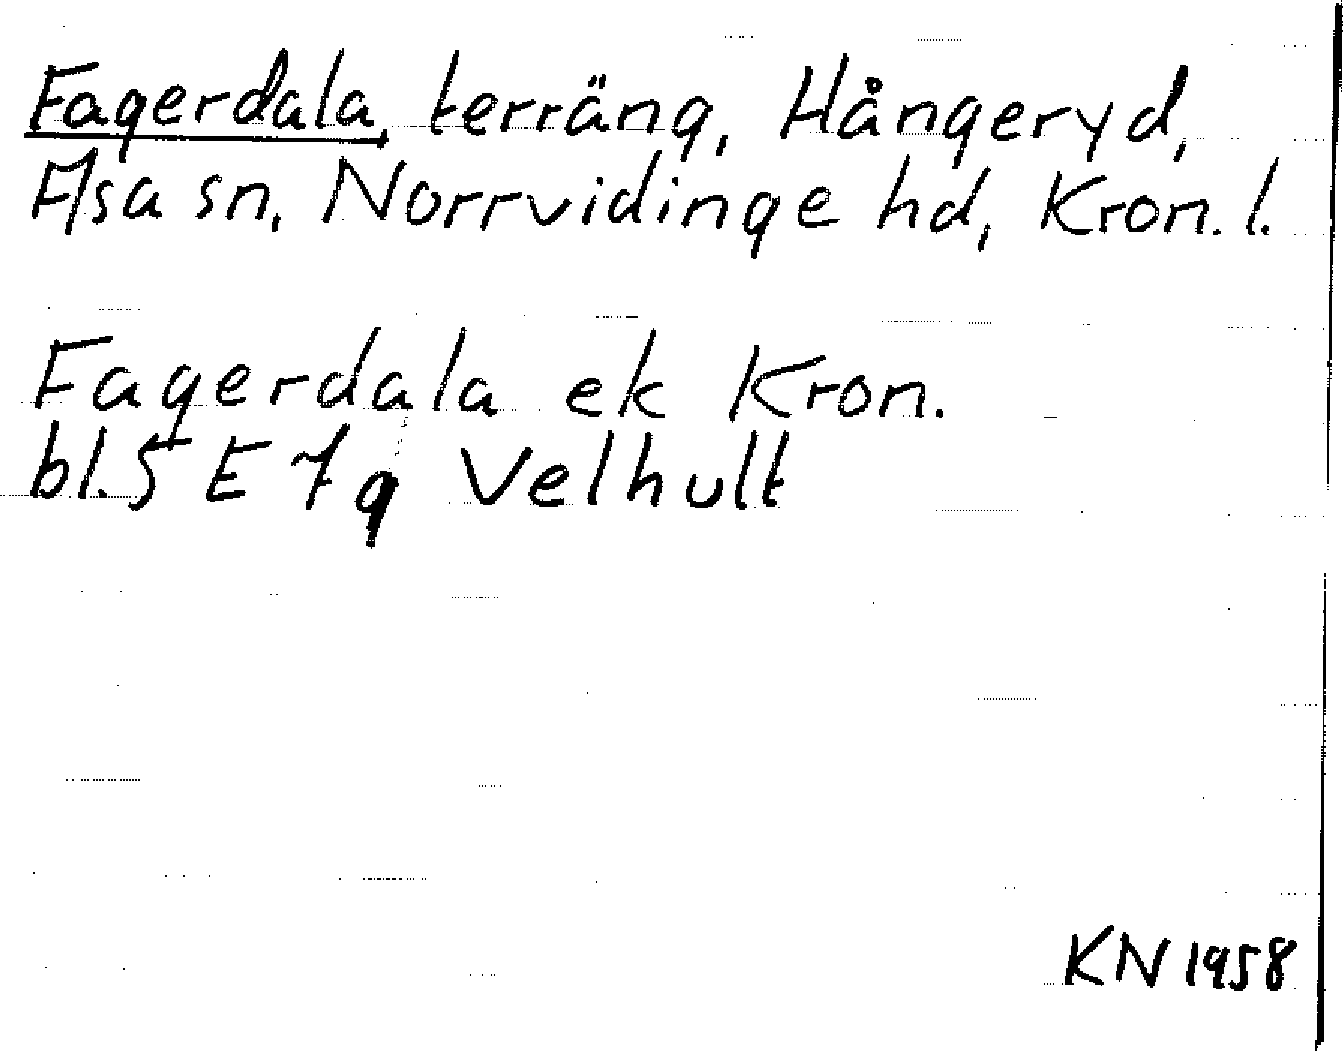 Fagerdala, terräng, Hångeryd,
Asa sn, Norrvidinge hd, Kron. l.
Fagerdala ek Kron.
bl. 5 E 7 g Velhult
KN 1958